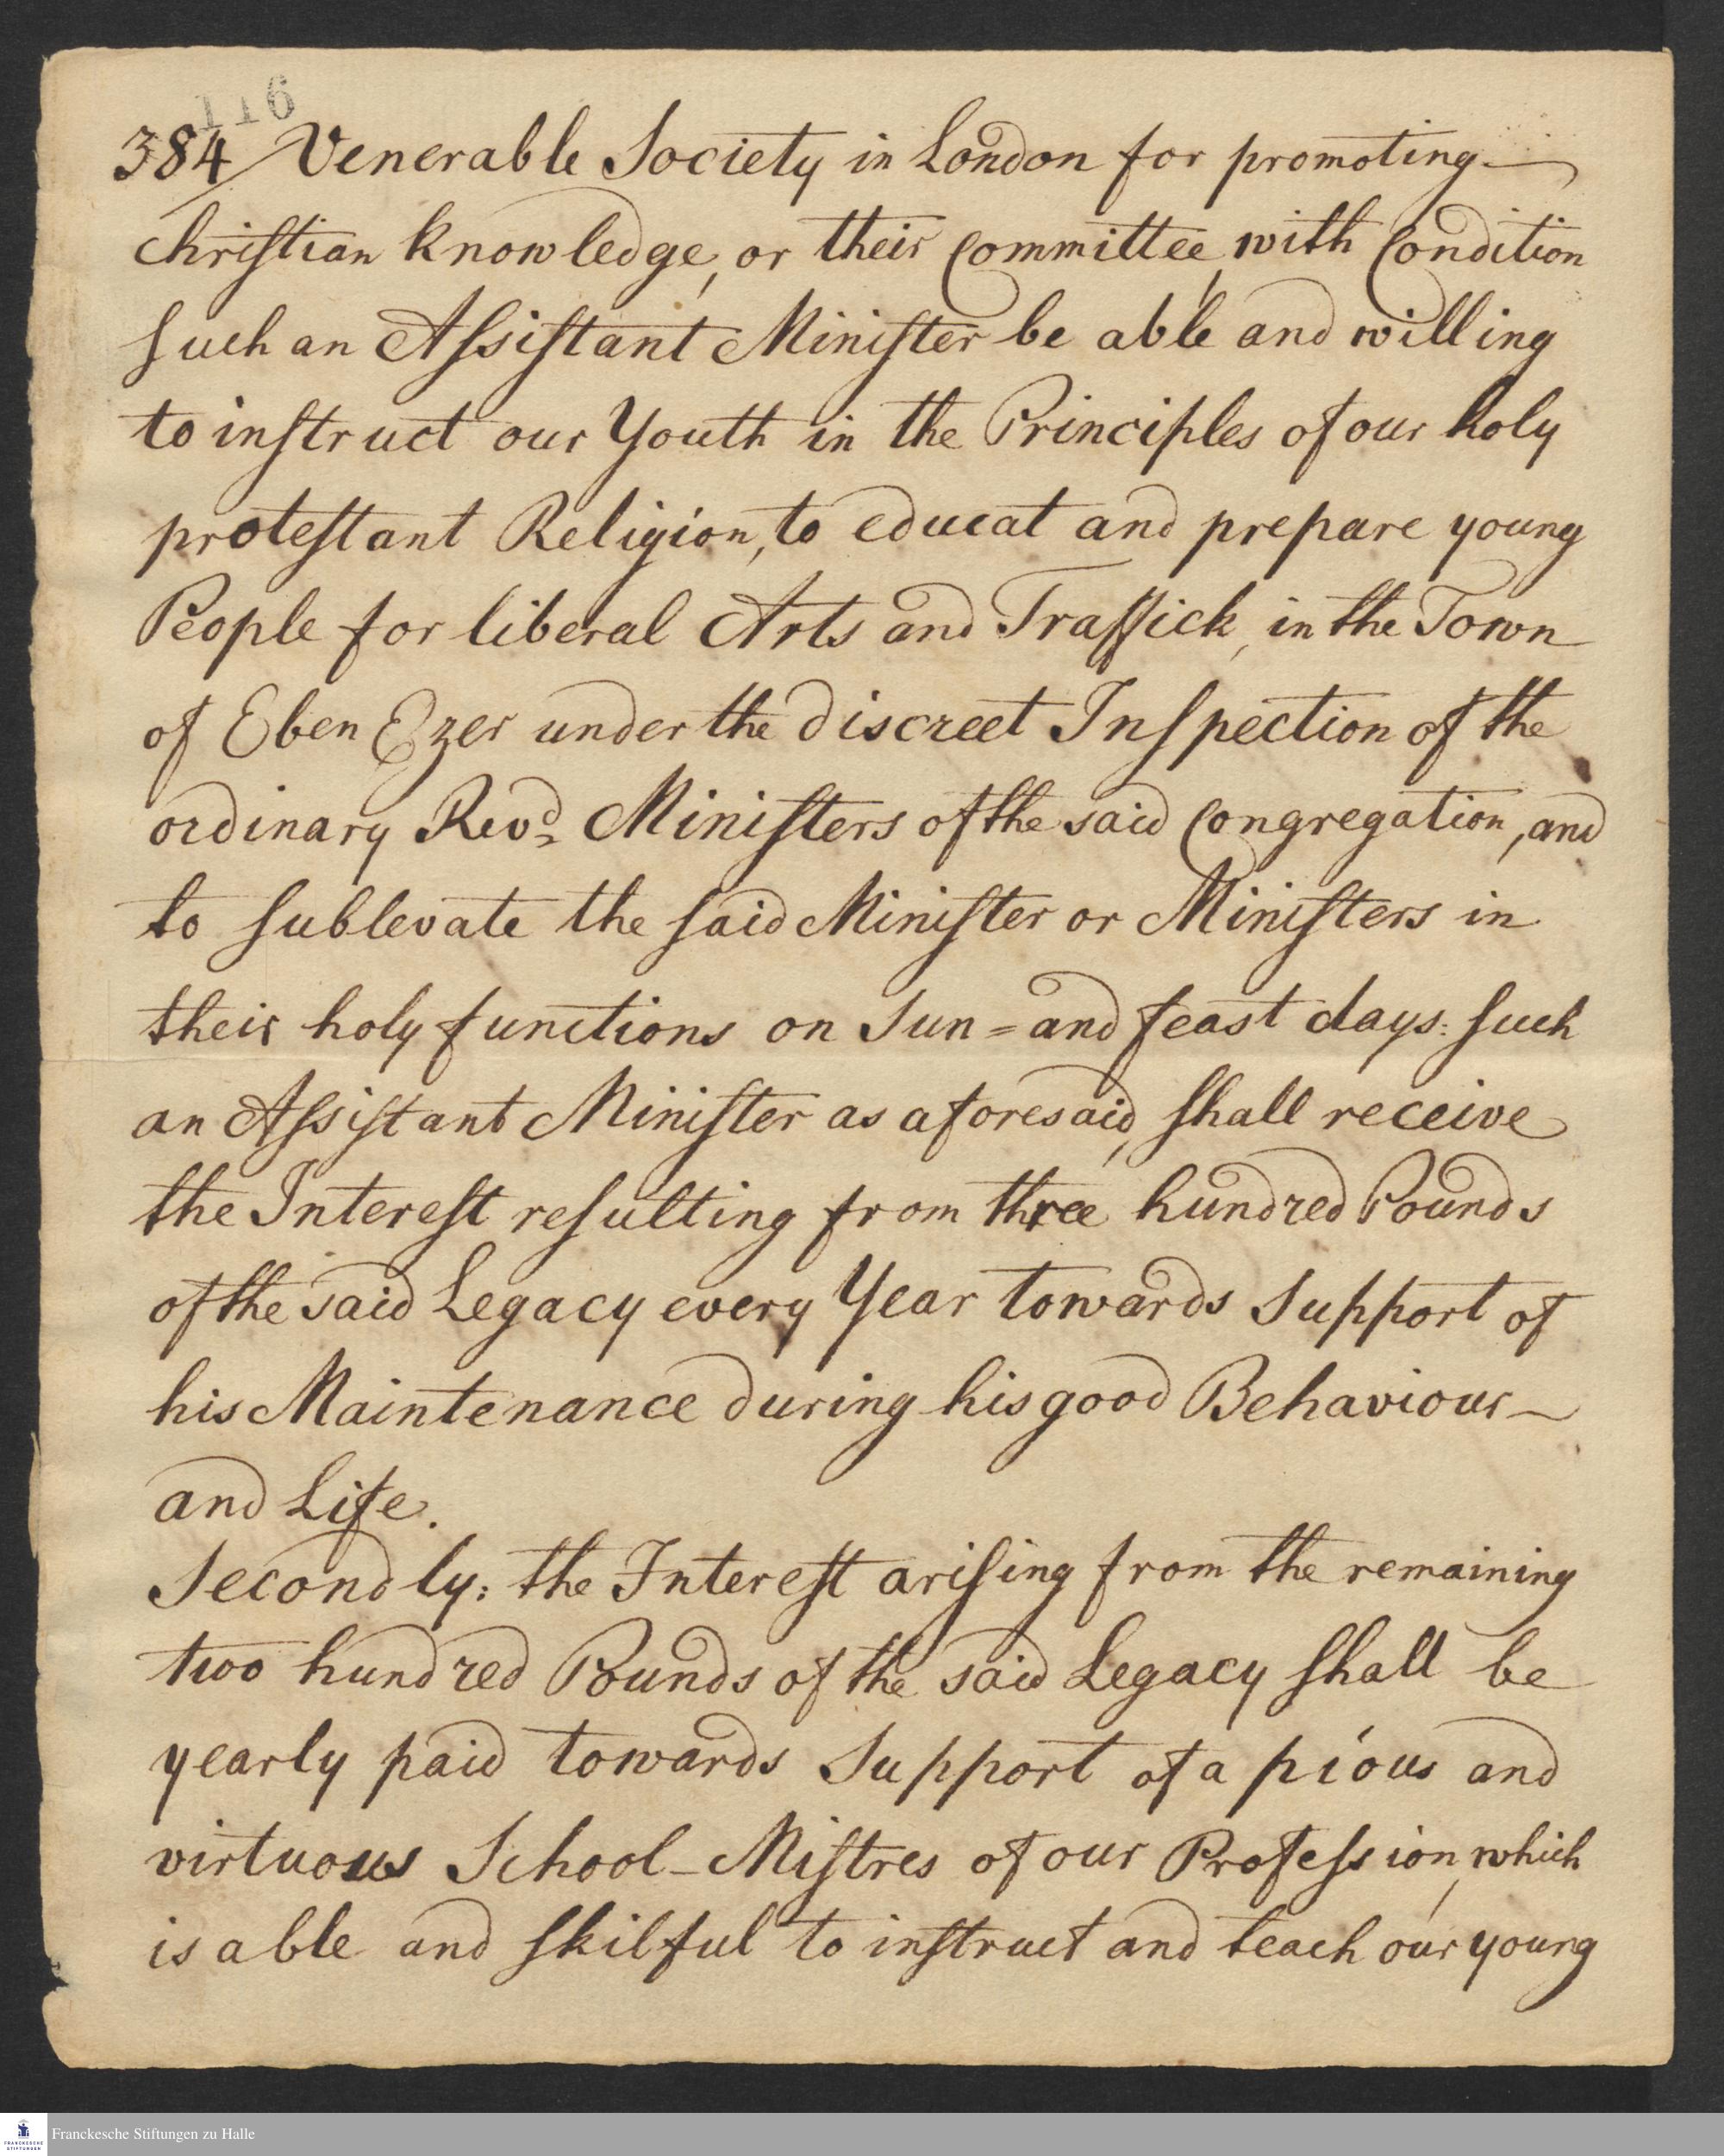 116
384 Venerable Society in London for promoting
Christian knowledge, or their Committee, with Condition
such an Assistant Minister be able and willing
to instruct our Youth in the Principles of our holy
protestant Religion, to educat and prepare young
People for liberal Arts and Traffick, in the Town
of Eben Ezer under the discreet Inspection of the
ordinary Revd. Ministers of the said Congregation, and
to sublevate the said Minister or Ministers in
their holy functions on Sun = and feast days: such
an Assistant Minister as aforesaid, shall receive
the Interest resulting from three hundred Pounds
of the said Legacy every Year towards Support of
his Maintenance during his good Behaviour
and Life.
Secondly: the Interest arising from the remaining
two hundred Pounds of the said Legacy shall be
yearly paid towards Support of a pious and
virtuous School-Mistres of our Profession, which
is able and skilful to instruct and teach our young
FRANCKESCHE STIFTUNGEN
Franckesche Stiftungen zu Halle